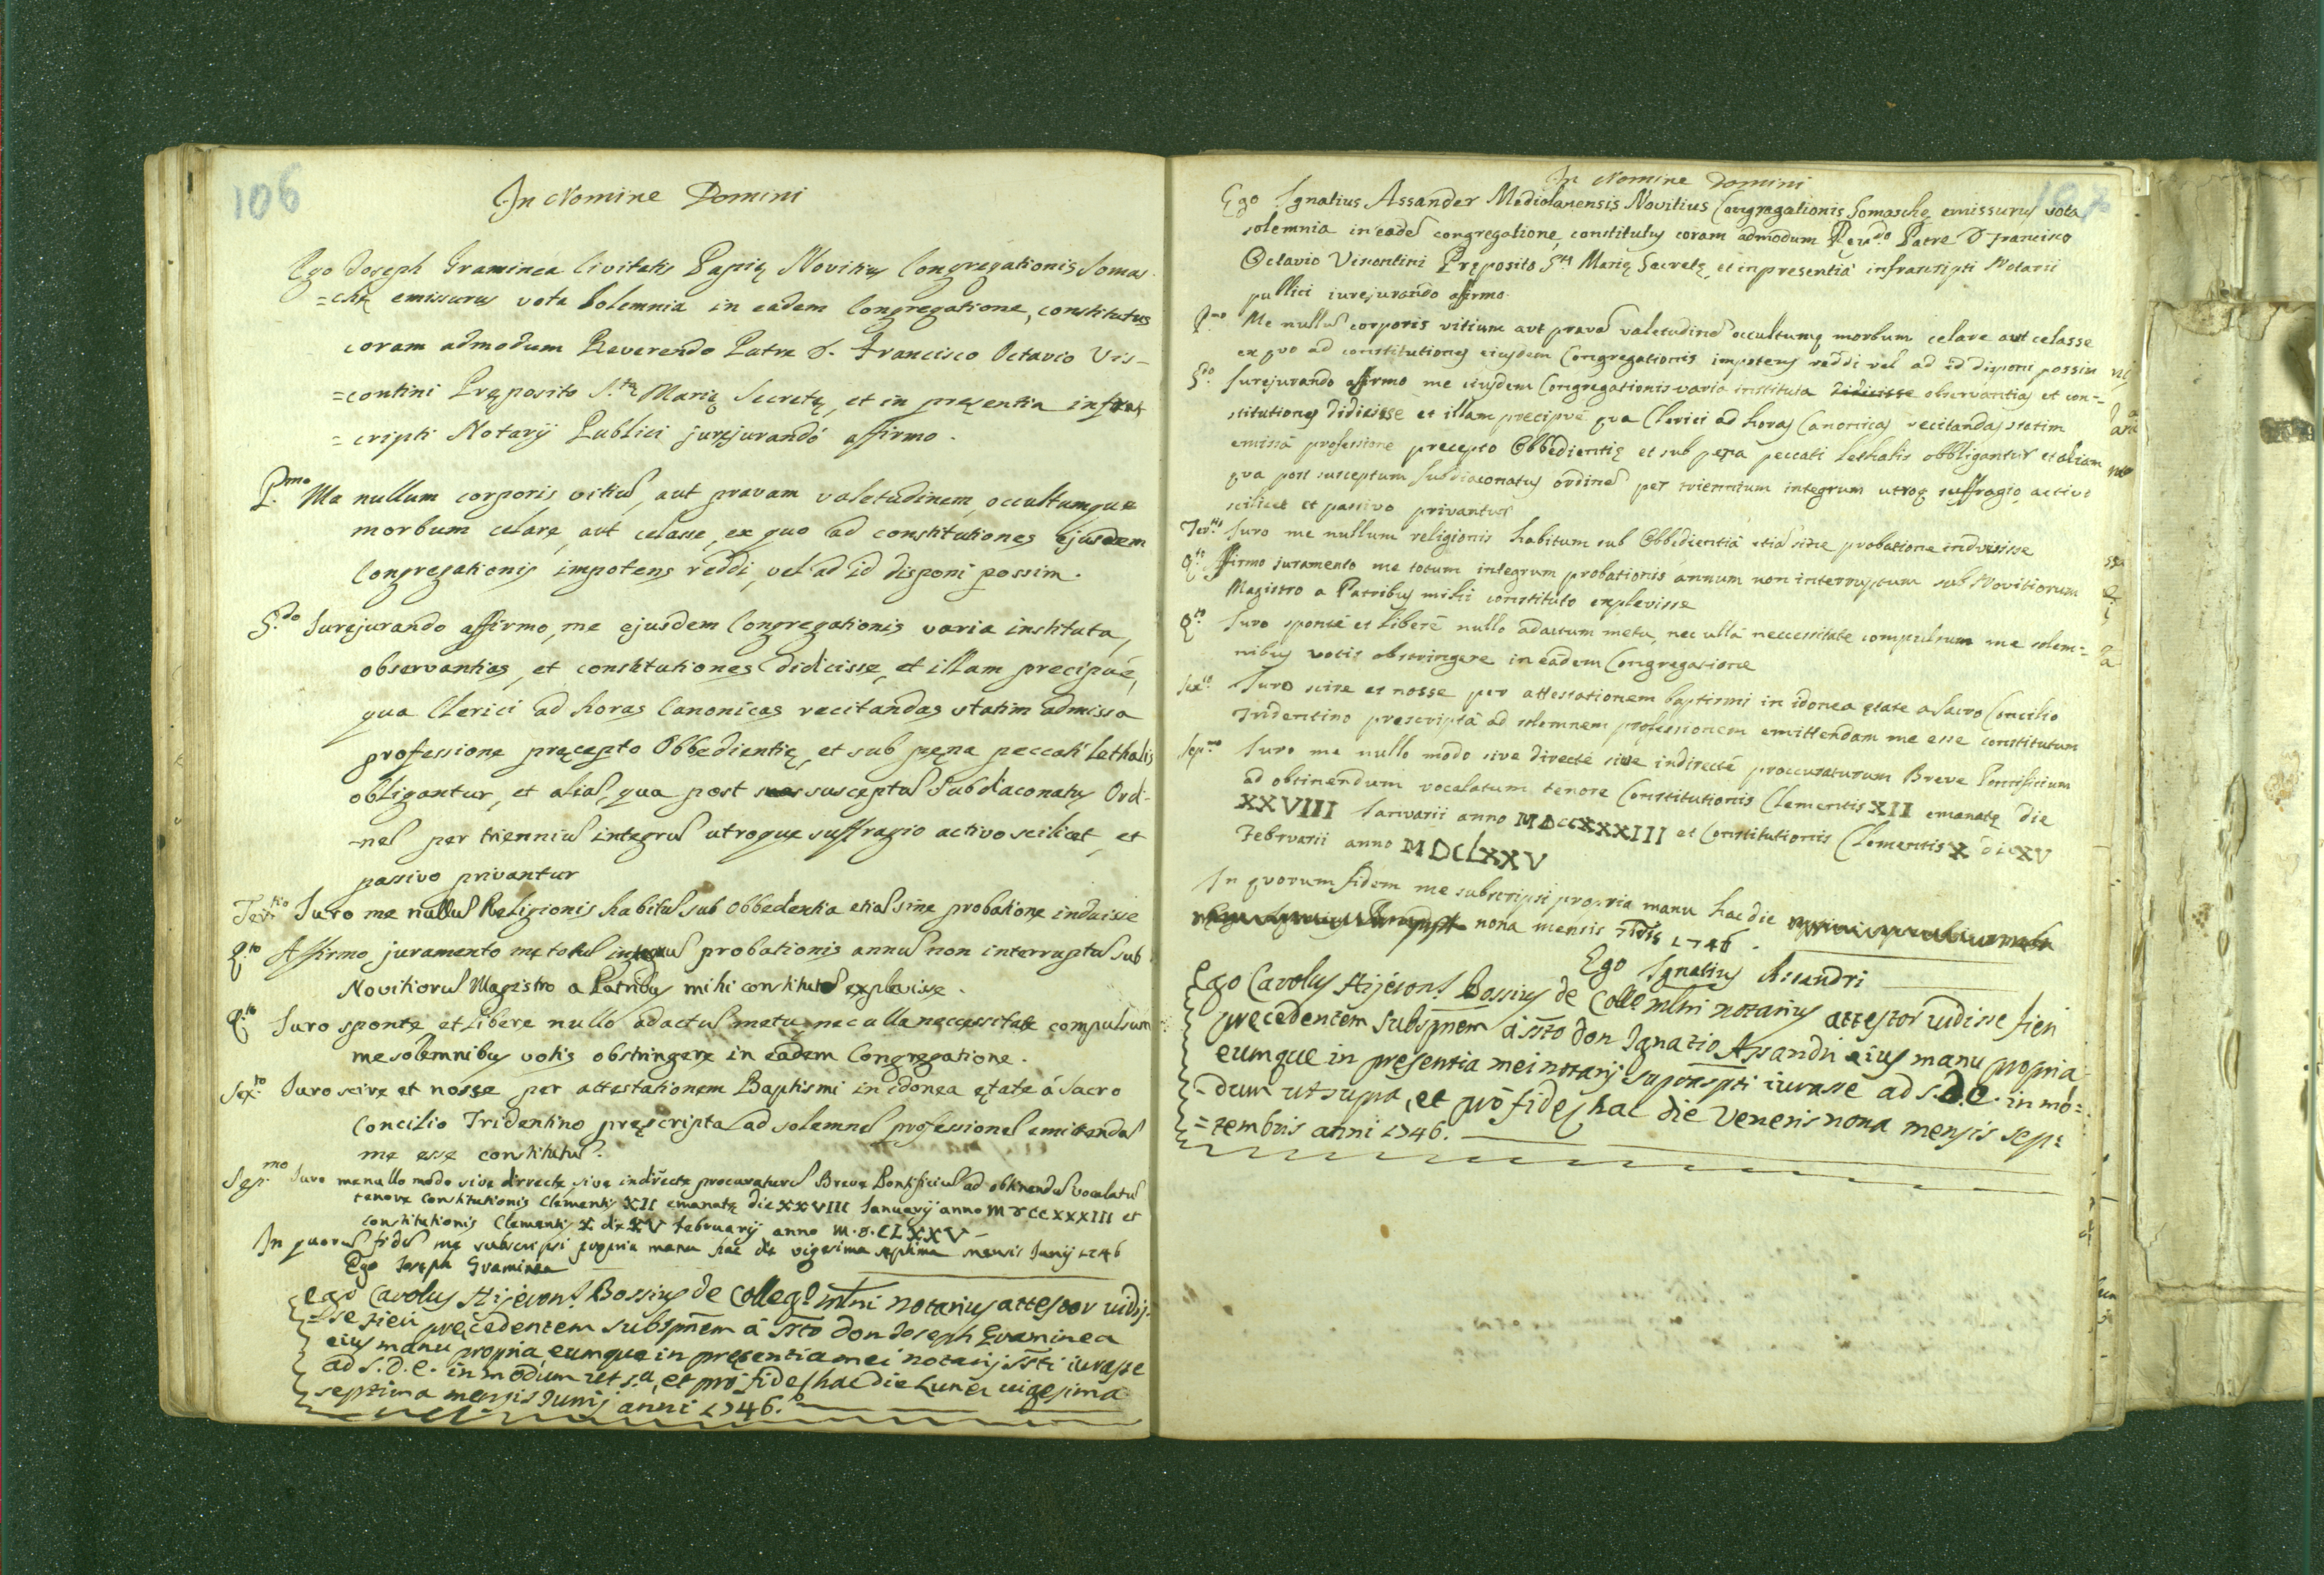 106
In Nomine Domini
Ego Joseph Graminea Civitatis Papię Novitius Congregationis Somas
=chę emissurus vota Solemnia in eadem Congregatione, constitutus
coram admodum Reverendo Patre D. Francisco Octavio Vis-
=contini Pręposito S.tę Marię Secretę, et in pręsentia infras
=cripti Notarij Publici jurejurandó affirmo.
P.mo Me nullum corporis vitiu, aut pravam valetudinem, occultumque
morbum celare, aut celasse, ex quo ad constitutiones ejusdem
Congregationis impotens reddi, vel ad id disponi possim.
S.do Jurejurando affirmo, me ejusdem Congregationis varia instituta,
observantias, et constitutiones didicisse, et illam precipué,
qua Clerici ad horas Canonicas recitandas statim admissa
professione pręcepto Obbedientię, et sub pęna peccati Lethalis
obligantur, et alia, qua post susceptu Subdiaconatus Ordi-
-ne per trienniu integru utroque suffragio activo scilicet, et
passivo privantur
Ter.tio Juro me nullu Religionis habitu sub Obbedentia etia sine probatione induisse
Q.to Affirmo juramento me totu integru probationis annu non interruptu sub
Novitioru Magistro a Patribus mihi constituto explevisse.
Q.to Juro sponte, et Libere nullo adactu metu, nec ulla neccessitate compulsum
me solemnibus votis obstringere in eadem Congregatione.
Sex.to Juro scire et nosse per attestationem Baptismi in idonea ętate á Sacro
Concilio Tridentino pręscripta ad solemne professione emittenda
me esse constitutu.
Sep.mo Juro me nullo modo sive dirrecte, sive indirrecte procuraturu Breve Pontificiu ad obtinendu vocalatu
tenore Constitutionis Clementis XII emanatę die XXVIII Januarij anno MDCCXXXIII et
Constitutionis Clementis X die XV februarij anno M.D.CLXXV
In quoru fide me subscripsi propria manu hac die vigesima septima mensis Junij 1746
Ego Joseph Graminea
Ego Carolus Hijeron.s Bossius de Colleg.o mlni notarius attestor uidis-
=se fieri pręcedentem subspnem á ssto don Joseph Graminea
eius manu propria eumque in pręsentia mei notarij ssti iurasse
ad S.D.E. in modum ut s.a, et pro fide hac die Lunę uigesima
septima mensis Junij anni 1746.
107
In Nomine Domini
Ego Ignatius Assander Mediolanensis Novitius Congregationis Somaschę emissurus vota
solemnia in eade congregatione, constitutus coram admodum Reu.do Patre D Francisco
Octavio Visontini Pręposito S.tę Marię Secretę, et in presentiá infrascripti Notarii
publici iurejurando afirmo.
P.mo Me nullu corporis vitium aut prava valetudine occultumq morbum celare aut celasse
ex quo ad constitutiones eiusdem Congregationis impotens reddi vel ad id disponi possim
S.do Jurejurando affirmo me eiusdem Congregationis varia instituta didicisse observantias et con-=
stitutiones didicisse et illam precipuè qua Clerici ad horas Canonicas recitandas statim
emissâ professione precepto Obbedientię et sub pęna peccati Lethalis obbligantur et aliam
qua post susceptum Subdiaconatus ordine per triennium integrum utroq suffragio, activo
scilicet et passivo privantur
Ter.tio Juro me nullum religionis habitum sub Obbedientiâ etia sine probatione induisse
Q.to Affirmo iuramento me totum integrum probationis annum non interruptum sub Novitiorum
Magistro a Patribus mihi constituto explevisse
Q.to Juro sponté et liberé nullo adactum metu, nec ullâ neccessitate compulsum me solem-=
nibus votis obstringere in eadem Congregatione
Sex.to Juro scire et nosse per attestationem baptismi in idonea ętate a Sacro Concilio
Tridentino prescriptâ ad solemnem professionem emittendam me esse constitutum
Sep.mo Juro me nullo modo sive directé sive indirecté proccuraturum Breve Pontificium
ad obtinendum vocalatum tenore Constitutionis Clementis XII emanatę die
XXVIII Januarii anno MDCCXXXIII et Constitutionis Clementis X die XV
Februarii anno MDCLXXV
In quorum fidem me subscripsi propria manu hac die
nona mensis 7bris 1746.
Ego Ignatius Assandri
Ego Carolus Hijeron.s Bossius de Coll.o mlni notarius attestor uidisse fieri
precedentem subspnem á ssto don Ignatio Assandri eius manu propria
eumque in pręsentia mei notarij suprascpti iurasse ad S.D.E. in mo=
=dum ut supra, et pro fide hac die Veneris nona mensis sep=
=tembris anni 1746.